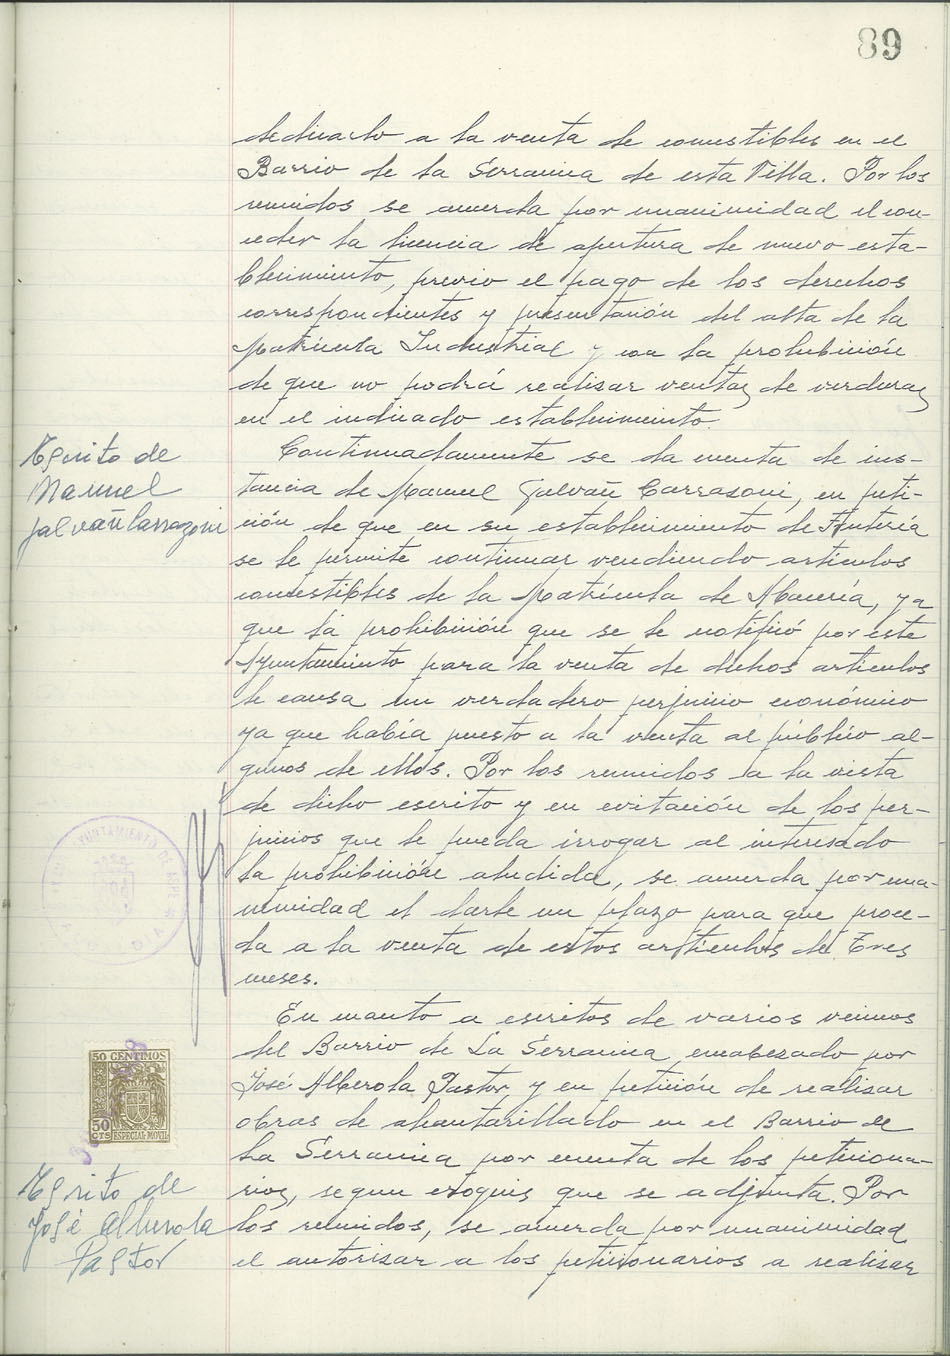 89
dedicado a la venta de comestibles en el
Barrio de la Serranica de esta Villa. Por los
reunidos se acuerda por unanimidad el con-
ceder la licencia de apertura de nuevo esta-
blecimiento, previo el pago de los derechos
correspondientes y presentación del alta de la
Matrícula Industrial y con la prohibición
de que no podrá realizar ventas de verduras
en el indicado establecimiento.
Escrito de
Manuel
Galvañ Carrazoni
Continuadamente se da cuenta de ins-
tancia de Manuel Galvañ Carrazoni, en peti-
ción de que en su establecimiento de
se le permite continuar vendiendo artículos
comestibles de la Matrícula de Abacería, ya
que la prohibición que se le notificó por este
Ayuntamiento para la venta de dichos artículos
le causa un verdadero perjuicio económico
ya que había puesto a la venta al público al-
gunos de ellos. Por los reunidos a la vista
de dicho escrito y en evitación de los per-
juicios que le pueda irrogar al interesado
la prohibición aludida, se acuerda por una-
nimidad el darle un plazo para que proce-
da a la venta de estos artículos de Tres
meses.
AYUNTAMIENTO DE ASPE
En cuanto a escritos de varios vecinos
del Barrio de La Serranica encabezado por
José Alberola Pastor, y en petición de realizar
obras de alcantarillado en el Barrio de
La Serranica por cuenta de los peticiona-
rios, segun croquis que se adjunta. Por
los reunidos, se acuerda por unanimidad
el autorizar a los peticionarios a realizar
50 CENTIMOS
50
CTS ESPECIAL MOVIL
Escrito de
José Alberola
Pastor